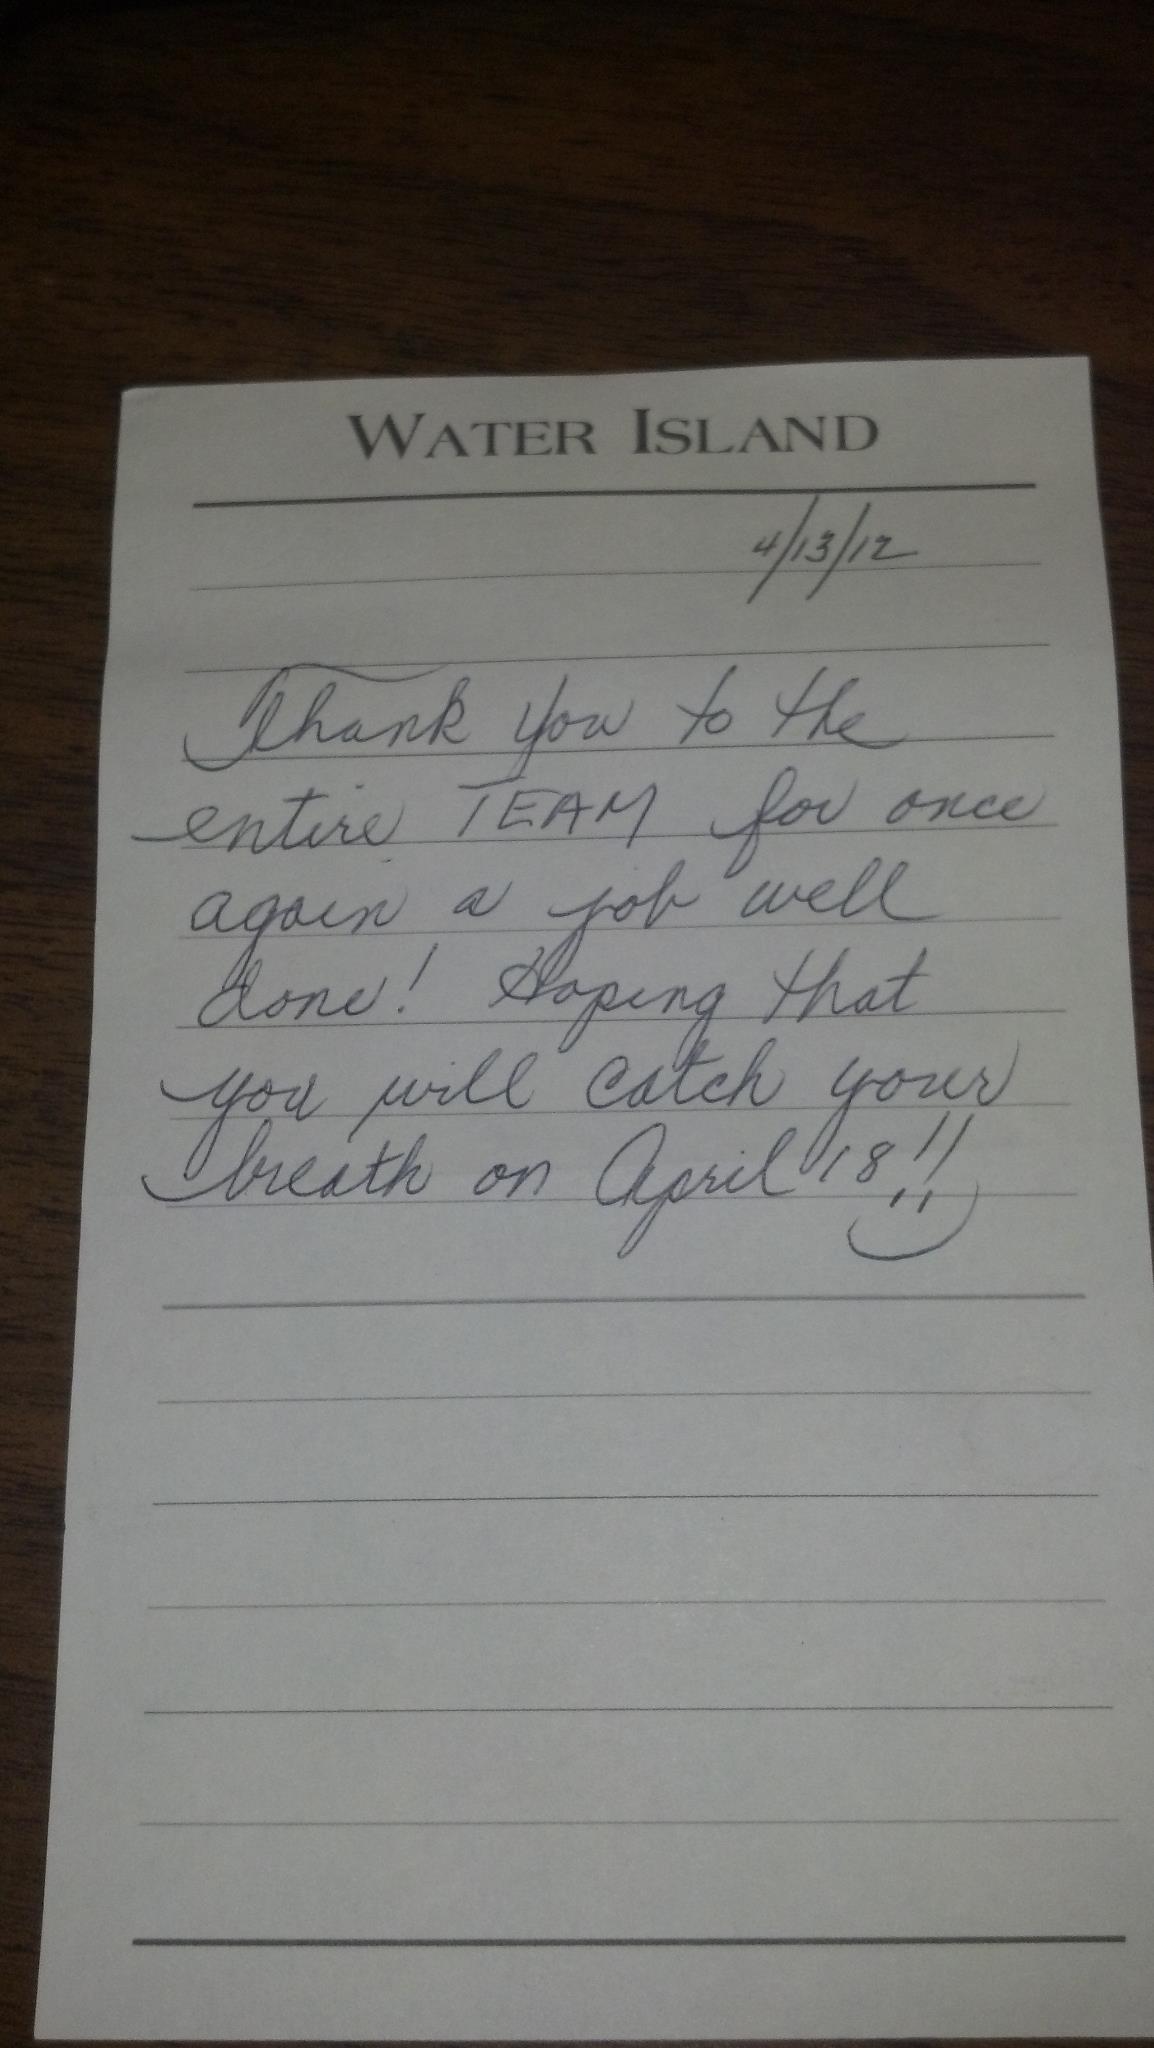 WATER ISLAND
4/13/12
Thank you to the
entire TEAM for once
again a job well
done! Hoping that
you will catch your
breath on April 18!!